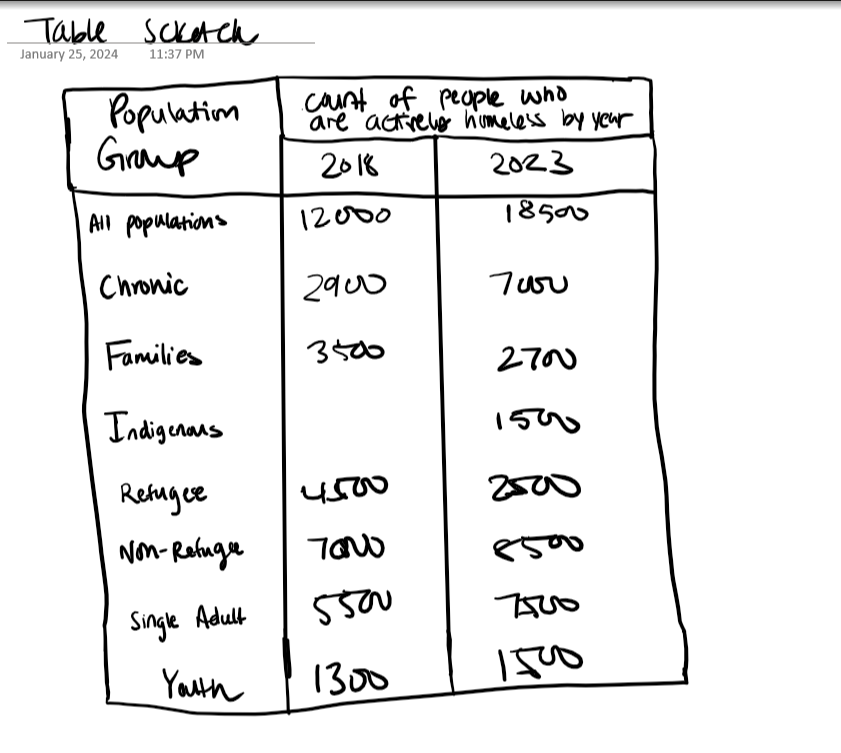 Table Scketch
January 25, 2024 11:37 PM
Population Group
count of people who
are actively homeless by year
2018 2023
All populations 12000 18500
Chronic 2900 7000
Families 3500 2700
Indigenous 1500
Refugee 4500 2500
Non-Refugee 7000 8500
Single Adult 5500 7500
Youth 1300 1500